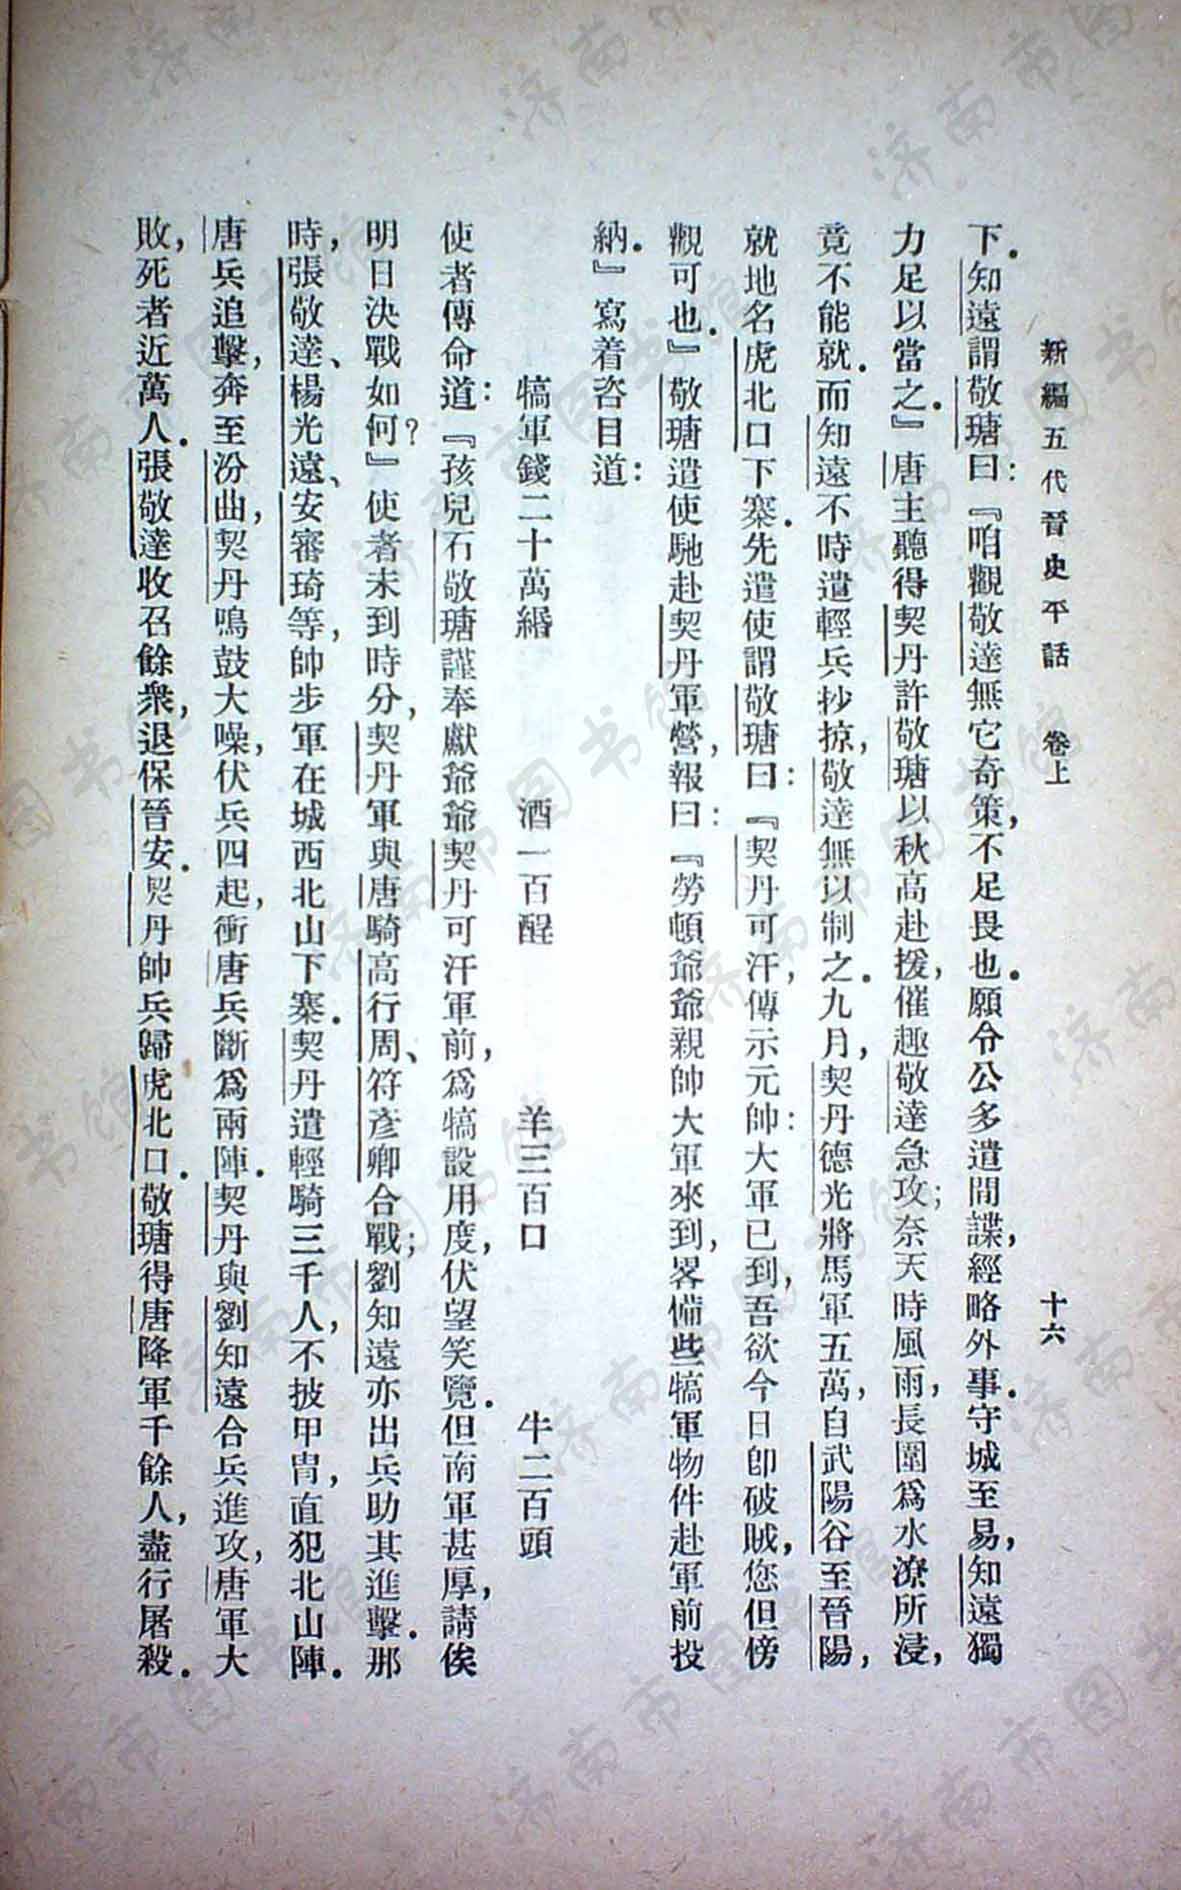 新編五代晉史平話 卷上 十六
下．知遠謂敬瑭曰：『咱觀敬達無它奇策，不足畏也．願令公多遣間諜，經略外事．守城至易，知遠獨
力足以當之．』唐主聽得契丹許敬瑭以秋高赴援，催趣敬達急攻；奈天時風雨，長圍爲水潦所浸，
竟不能就．而知遠不時遣輕兵抄掠，敬達無以制之．九月，契丹德光將馬軍五萬，自武陽谷至晉陽，
就地名虎北口下寨．先遣使謂敬瑭曰：『契丹可汗，傳示元帥：大軍已到，吾欲今日卽破賊，您但傍
觀可也．』敬瑭遣使馳赴契丹軍營，報曰：『勞頓爺爺親帥大軍來到，畧備些犒軍物件赴軍前投
納．』寫着咨目道：
犒軍錢二十萬緡 酒一百醒 羊三百口 牛二百頭
使者傳命道：『孩兒石敬瑭謹奉獻爺爺契丹可汗軍前，爲犒設用度，伏望笑覽．但南軍甚厚，請俟
明日決戰如何？』使者未到時分，契丹軍與唐騎高行周、符彥卿合戰；劉知遠亦出兵助其進擊．那
時，張敬達、楊光遠、安審琦等，帥步軍在城西北山下寨．契丹遣輕騎三千人，不披甲冑，直犯北山陣．
唐兵追擊，奔至汾曲，契丹鳴鼓大噪，伏兵四起，衝唐兵斷爲兩陣．契丹與劉知遠合兵進攻，唐軍大
敗，死者近萬人．張敬達收召餘衆，退保晉安．契丹帥兵歸虎北口．敬瑭得唐降軍千餘人，盡行屠殺．
济南市图书馆